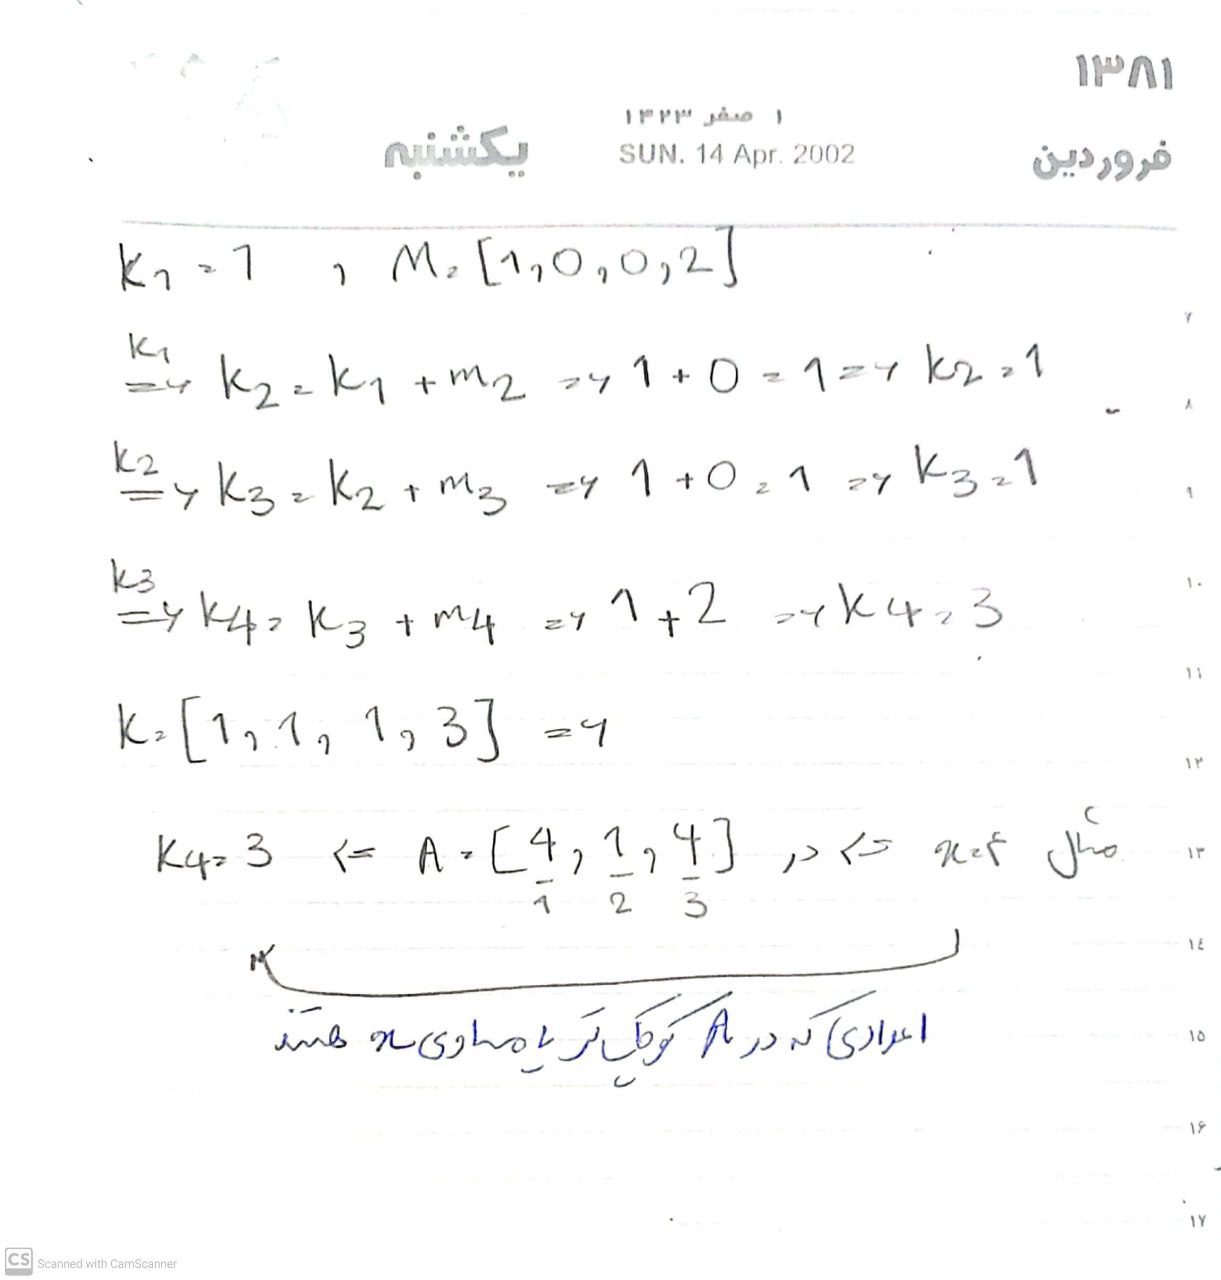 ۱۳۸۱
۱ صفر ۱۴۲۳
فروردین
SUN. 14 Apr. 2002
یکشنبه
K1 = 1 , M = [1,0,0,2]
K1 => K2 = K1 + m2 => 1 + 0 = 1 => K2 = 1
۷
۸
K2 => K3 = K2 + m3 => 1 + 0 = 1 => K3 = 1
۹
K3 => K4 = K3 + m4 => 1 + 2 => K4 = 3
۱۰
۱۱
K = [1, 1, 1, 3] =>
۱۲
مثال x=۴ => در A = [4, 1, 4] => K4 = 3
۱۳
1 2 3
۱۴
اعدادی که در A کوچک تر یا مساوی x هستند
۱۵
۱۶
۱۷
CS Scanned with CamScanner